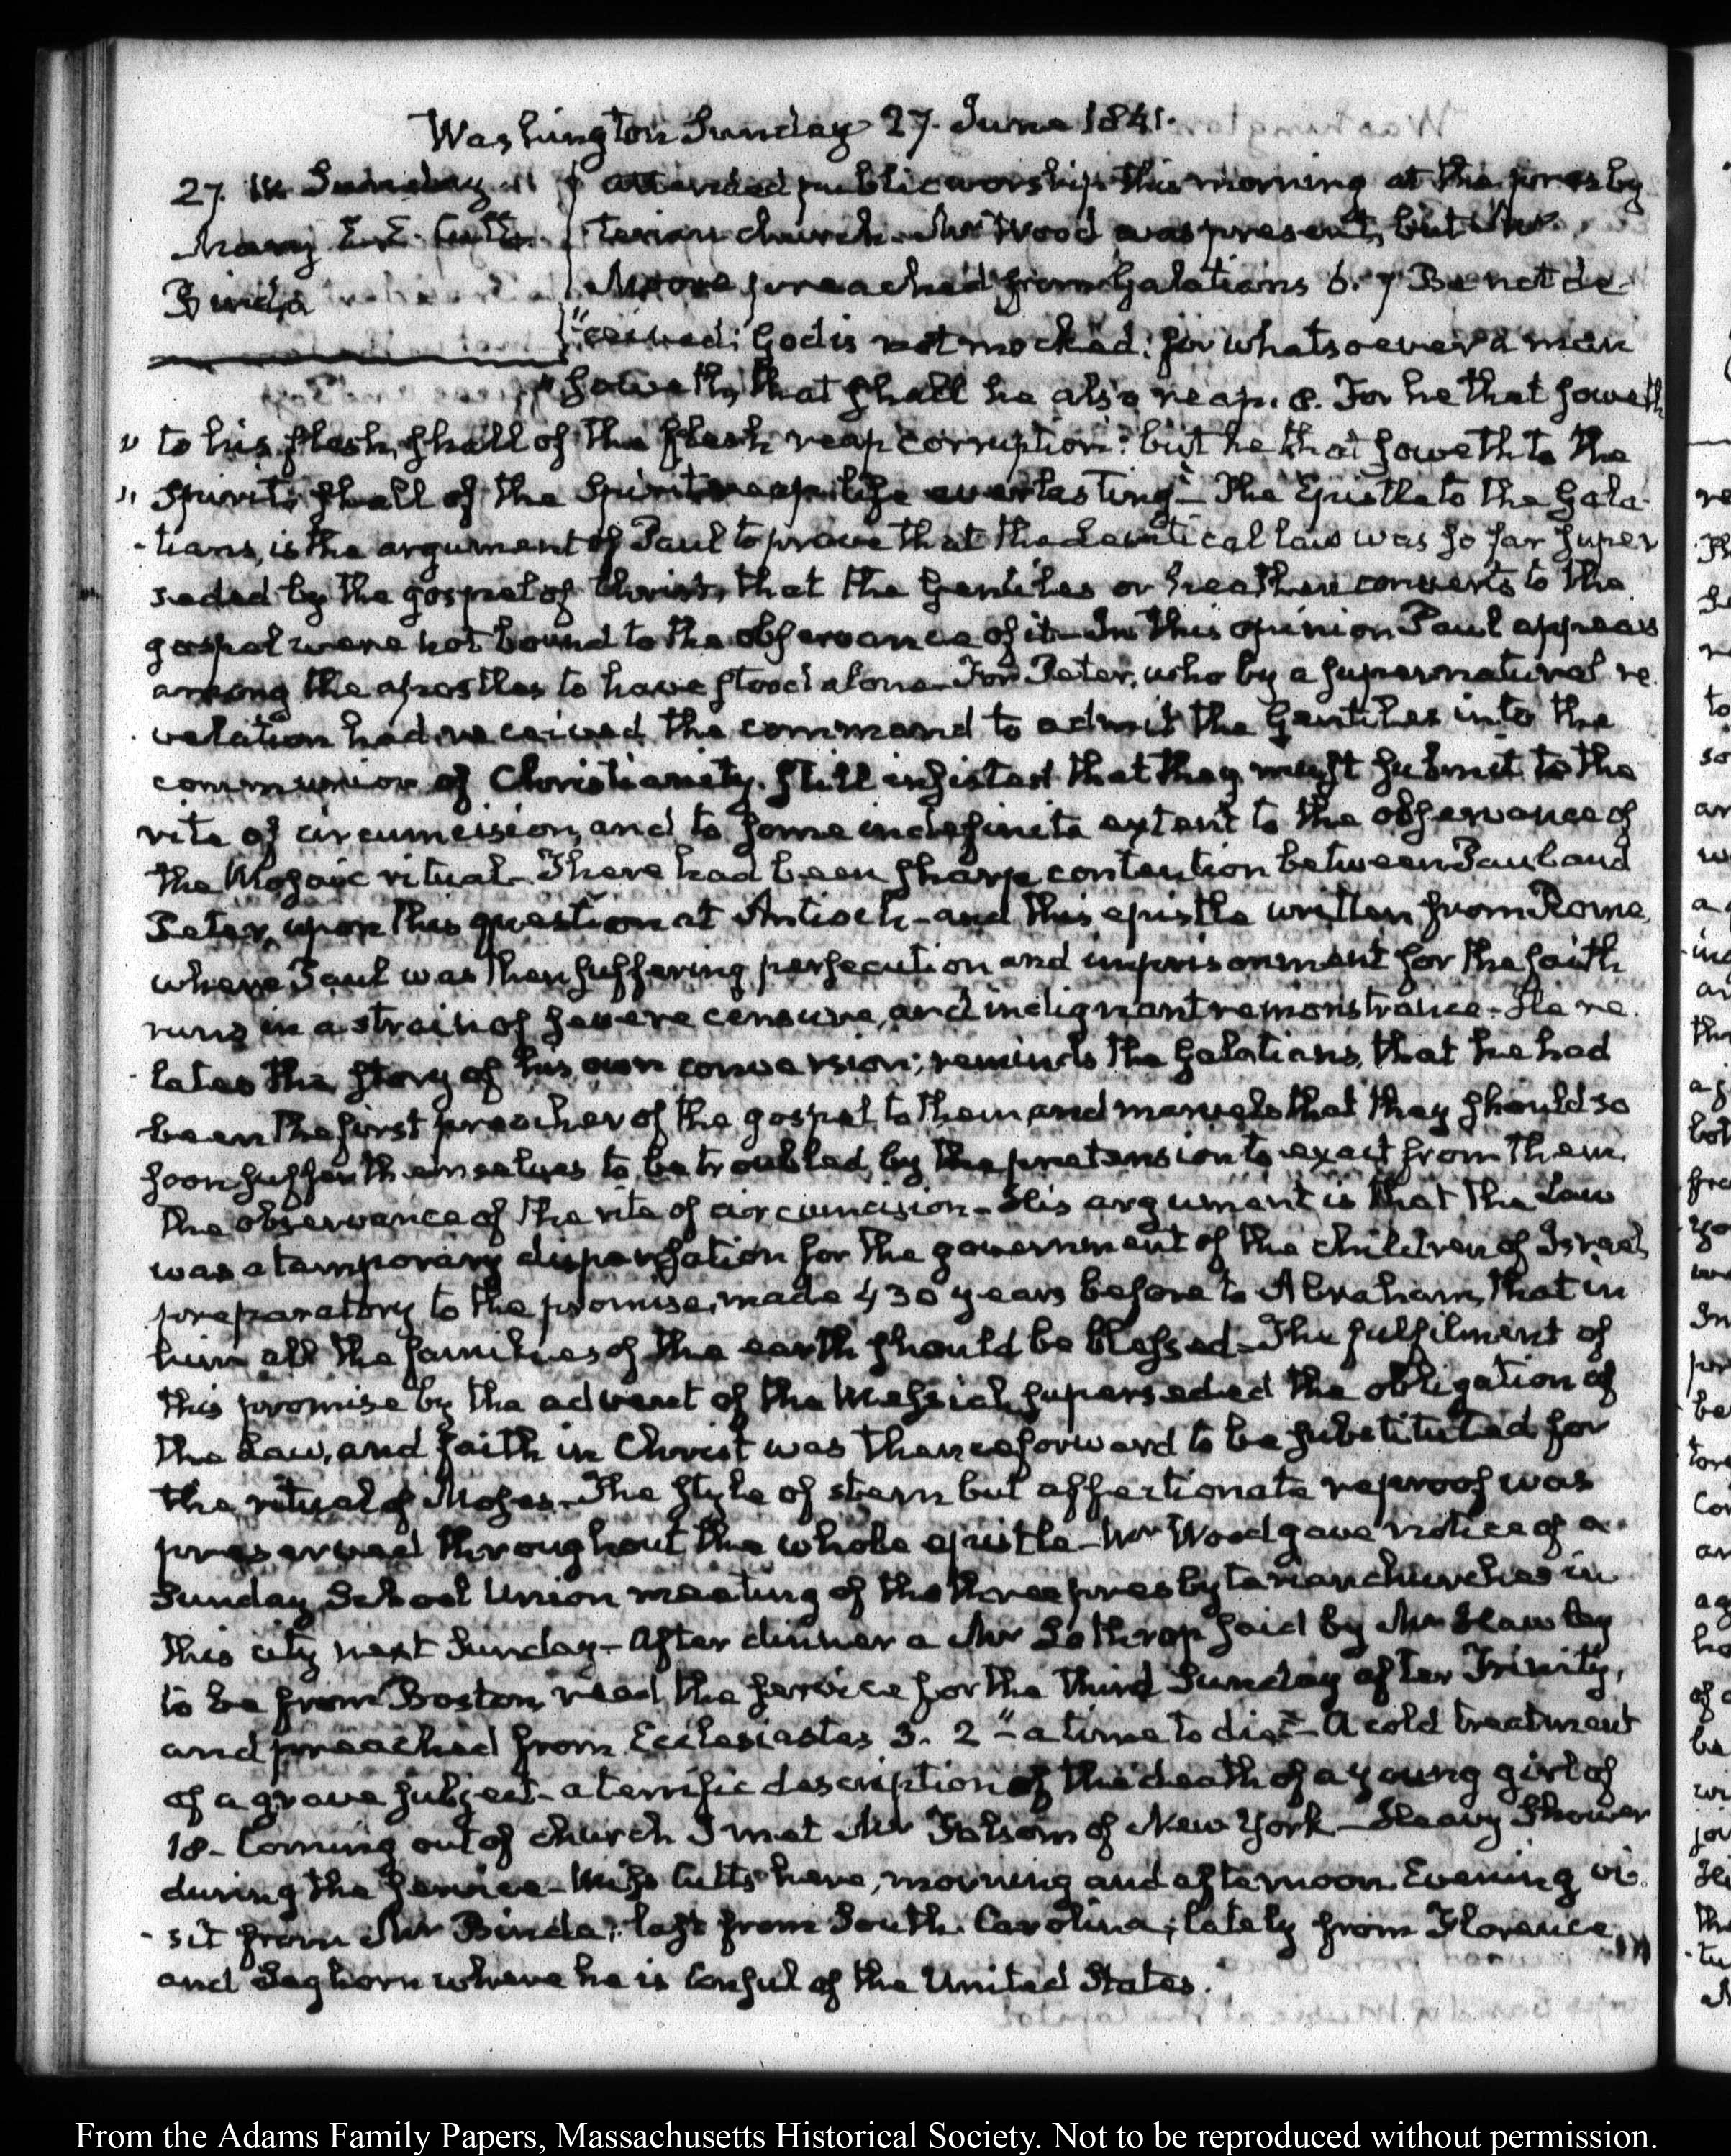 Washington Sunday 27. June 1841.
27. IV. Sunday
Mary E. E. Cutts
Binda
attended public worship this morning at the presby
terian church. Mr Wood was present, but Mr
Moore preached from Galatians 6. 7 Be not de-
"ceived; God is not mocked: for whatsoever a man
"soweth, that shall he also reap. 8. For he that soweth
" to his flesh, shall of the flesh reap corruption: but he that soweth to the
" Spirit, shall of the Spirit reap life everlasting"— The Epistle to the Gala-
-tians, is the argument of Paul to prove that the Levitical law was so far super
seded by the gospel of Christ, that the Gentiles or heathen converts to the
gospel were not bound to the observance of it— In this opinion Paul appears
among the apostles to have stood alone— For Peter, who by a supernatural re-
velation had received the command to admit the Gentiles into the
communion of Christianity, still insisted that they must submit to the
rite of circumcision, and to some indefinite extent to the observance of
the Mosaic ritual— There had been sharp contention between Paul and
Peter, upon this question at Antioch— and this epistle written from Rome,
where Paul was then suffering persecution and imprisonment for the faith
runs in a strain of severe censure, and indignant remonstrance— He re-
-lates the story of his own conversion; reminds the Galatians, that he had
been the first preacher of the gospel to them and marvels that they should so
soon suffer themselves to be troubled by the pretension to exact from them
the observance of the rite of circumcision— His argument is that the Law
was a temporary dispensation for the government of the children of Israel,
preparatory to the promise, made 430 years before to Abraham, that in
him all the families of the earth should be blessed— The fulfilment of
this promise by the advent of the Messiah, superseded the obligation of
the Law, and faith in Christ was thenceforward to be substituted for
the ritual of Moses— The style of stern but affectionate reproof was
preserved throughout the whole epistle— Mr Wood gave notice of a
Sunday School Union meeting of the three presbyterian churches in
this city next Sunday— After dinner a Mr Lothrop said by Mr Hawley
to be from Boston, read the service for the third Sunday after Trinity,
and preached from Ecclesiastes 3. 2 "— a time to die"— A cold treatment
of a grave subject— a terrific description of the death of a young girl of
18— Coming out of church I met Mr Folsom of New York— Heavy Shower
during the service— Miss Cutts here, morning and afternoon. Evening vi-
-sit from Mr Binda; last from South Carolina; lately from Florence,
and Leghorn where he is Consul of the United States.
From the Adams Family Papers, Massachusetts Historical Society. Not to be reproduced without permission.